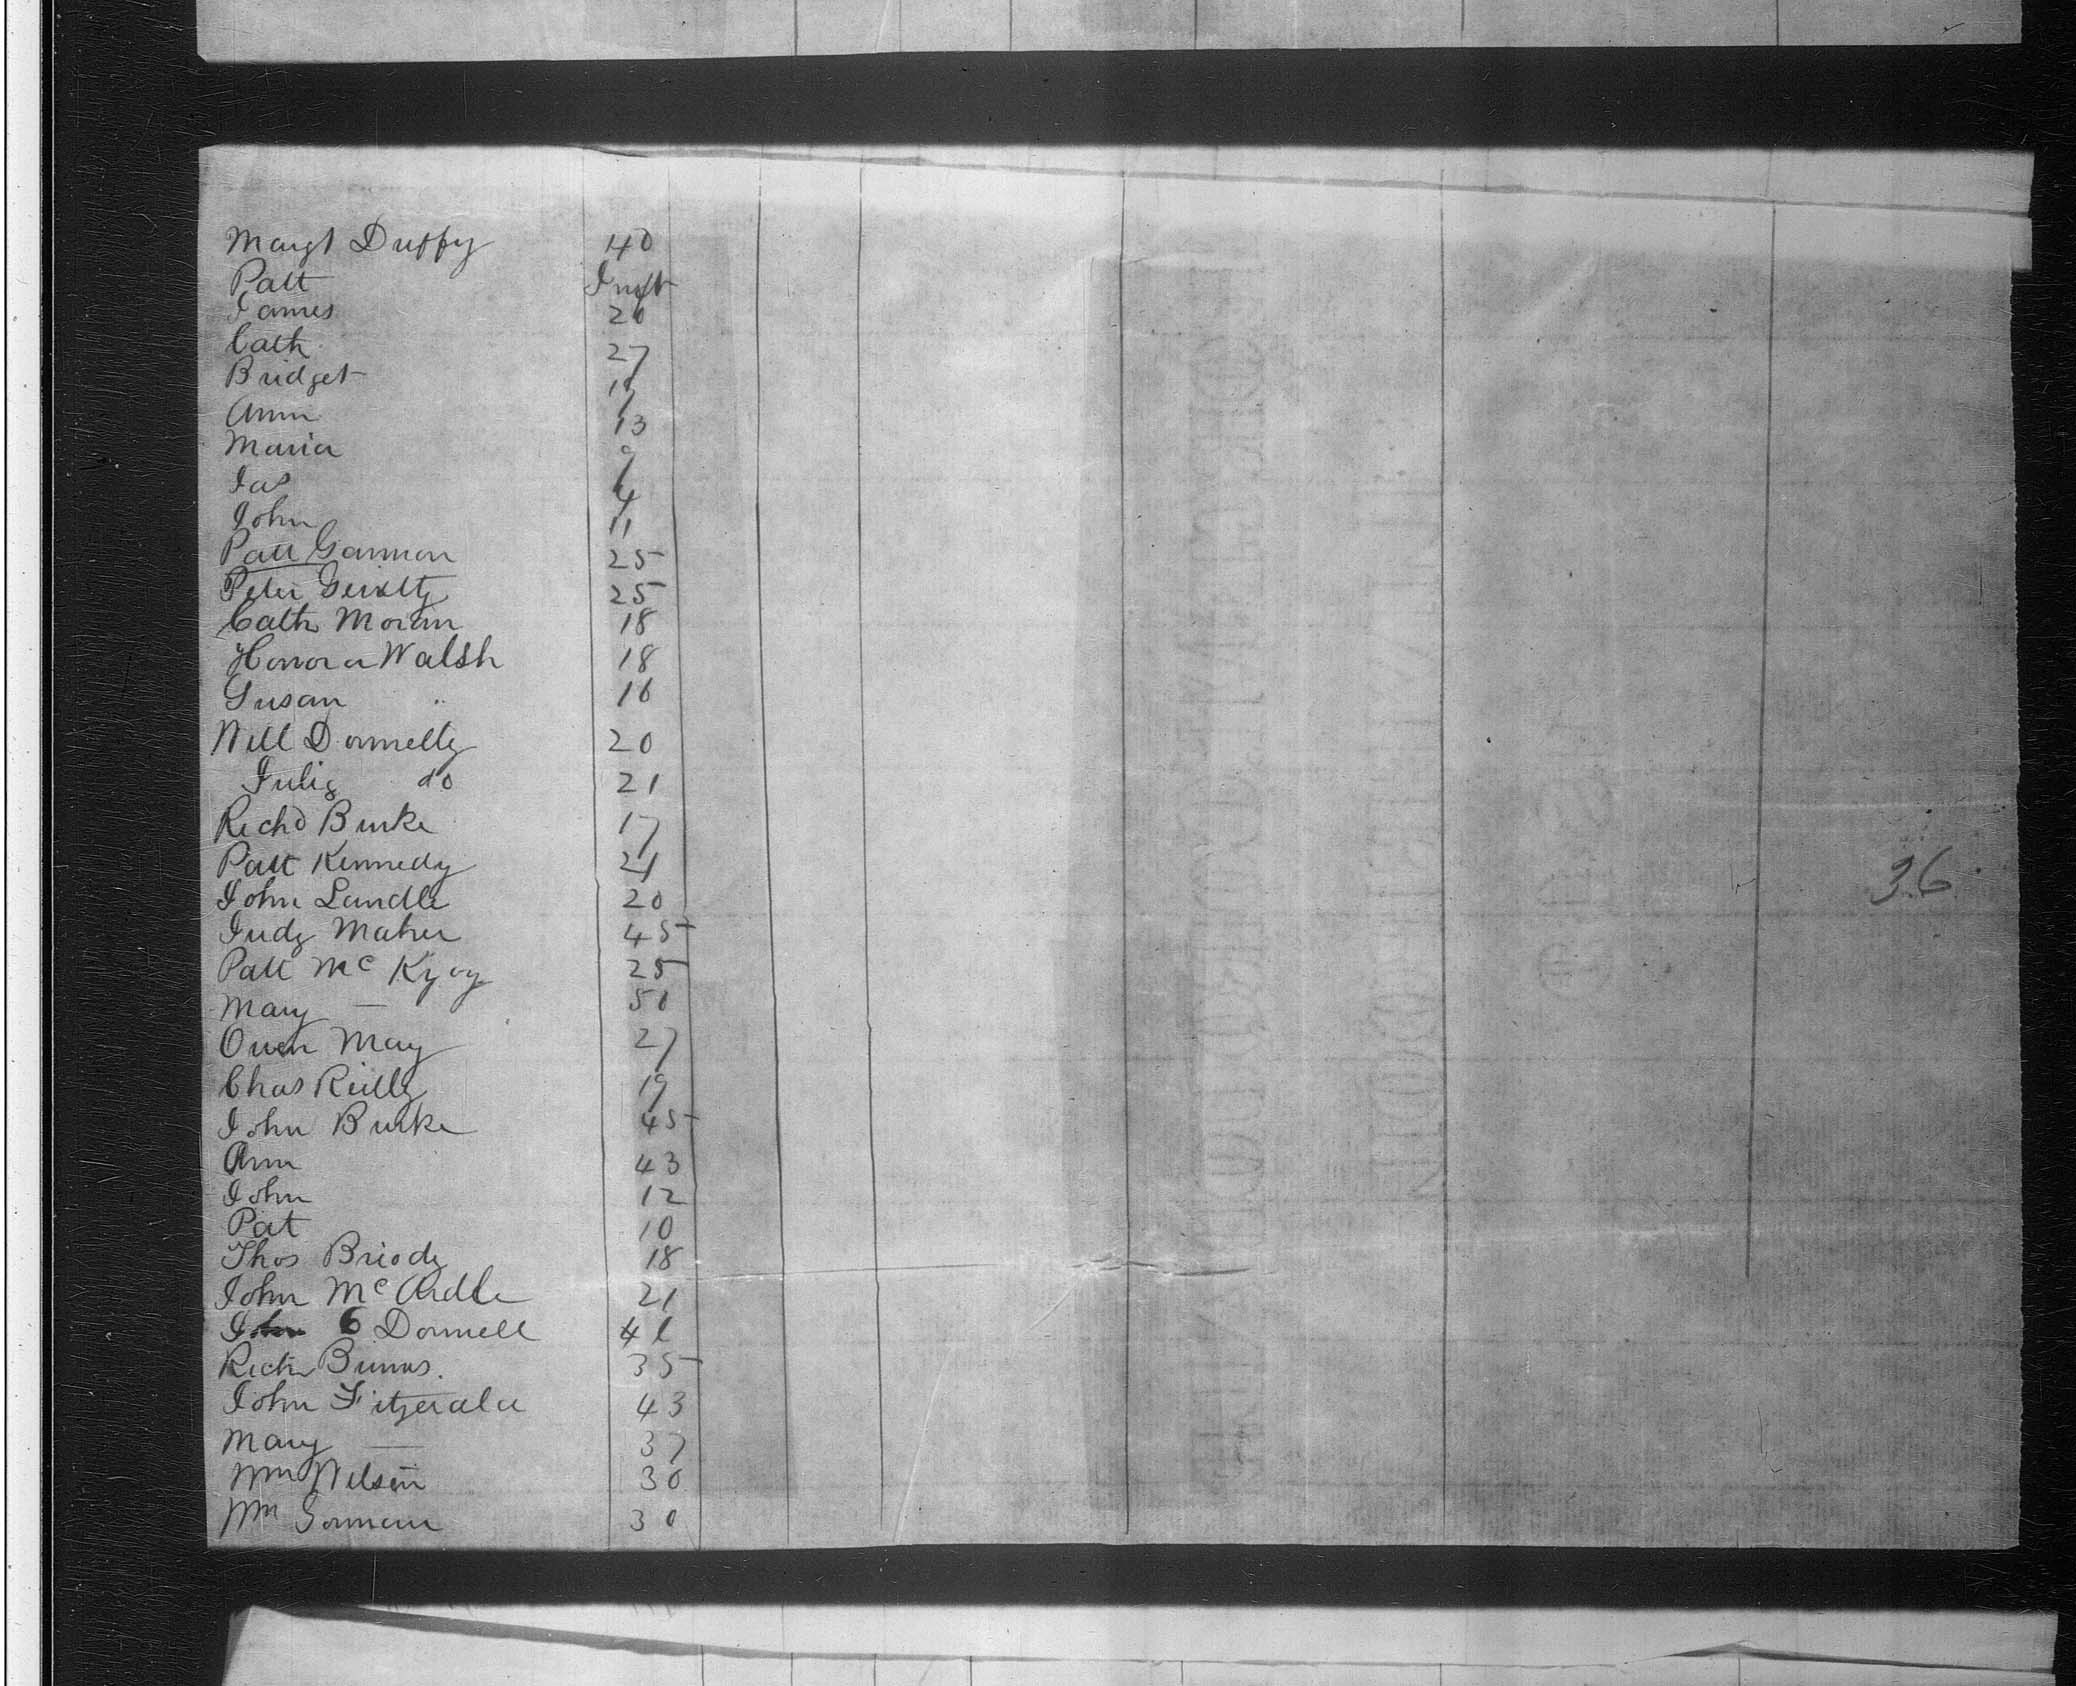 Margt Duffy 40
Patt Inft
James 20
Cath 27
Bridget 19
Ann 13
Maria 9
Jas
John 11
Patt Gannon 25
Peter 25
Cath Moran 18
Honora Walsh 18
Susan " 16
Will Donnelly 20
Julia do 21
Richd Burke 17
Patt Kennedy 21
John Landle 20
Judy Maher 45
Patt Mc 25
Mary — 50
Owen May 27
Chas Reilly 19
John Burke 45
Ann 43
John 12
Pat 10
Thos Briody 18
John McArdle 21
John O Donnell
Rich 35
John Fitzerald 43
Mary — 37
Wm Wilson 30
Wm Gorman 30
36